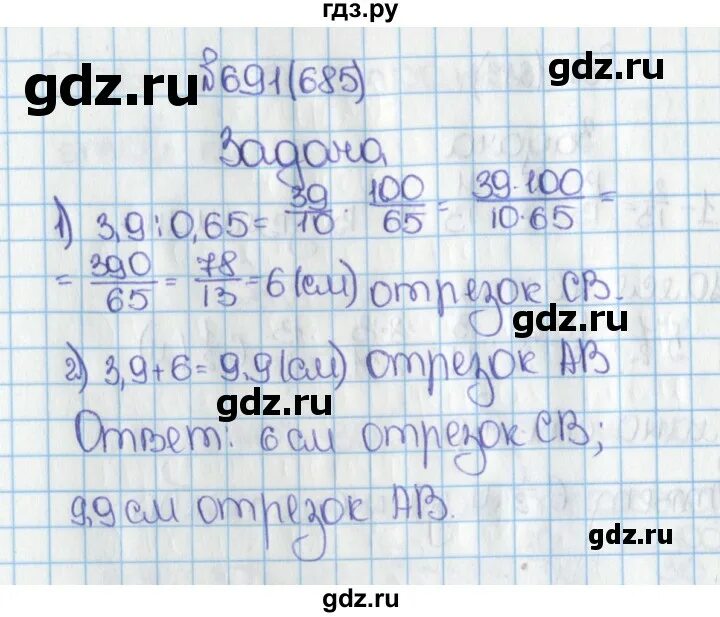 гдз.ру
gdz.ru
№691(685)
Задача
1) 3,9:0,65= 39/10 · 100/65 = 39·100/10·65 =
= 390/65 = 78/13 = 6 (см) отрезок CB.
gdz.ru
2) 3,9+6=9,9(см) отрезок AB
gdz.ru
Ответ: 6 см отрезок CB;
9,9 см отрезок AB.
gdz.ru
gdz.ru